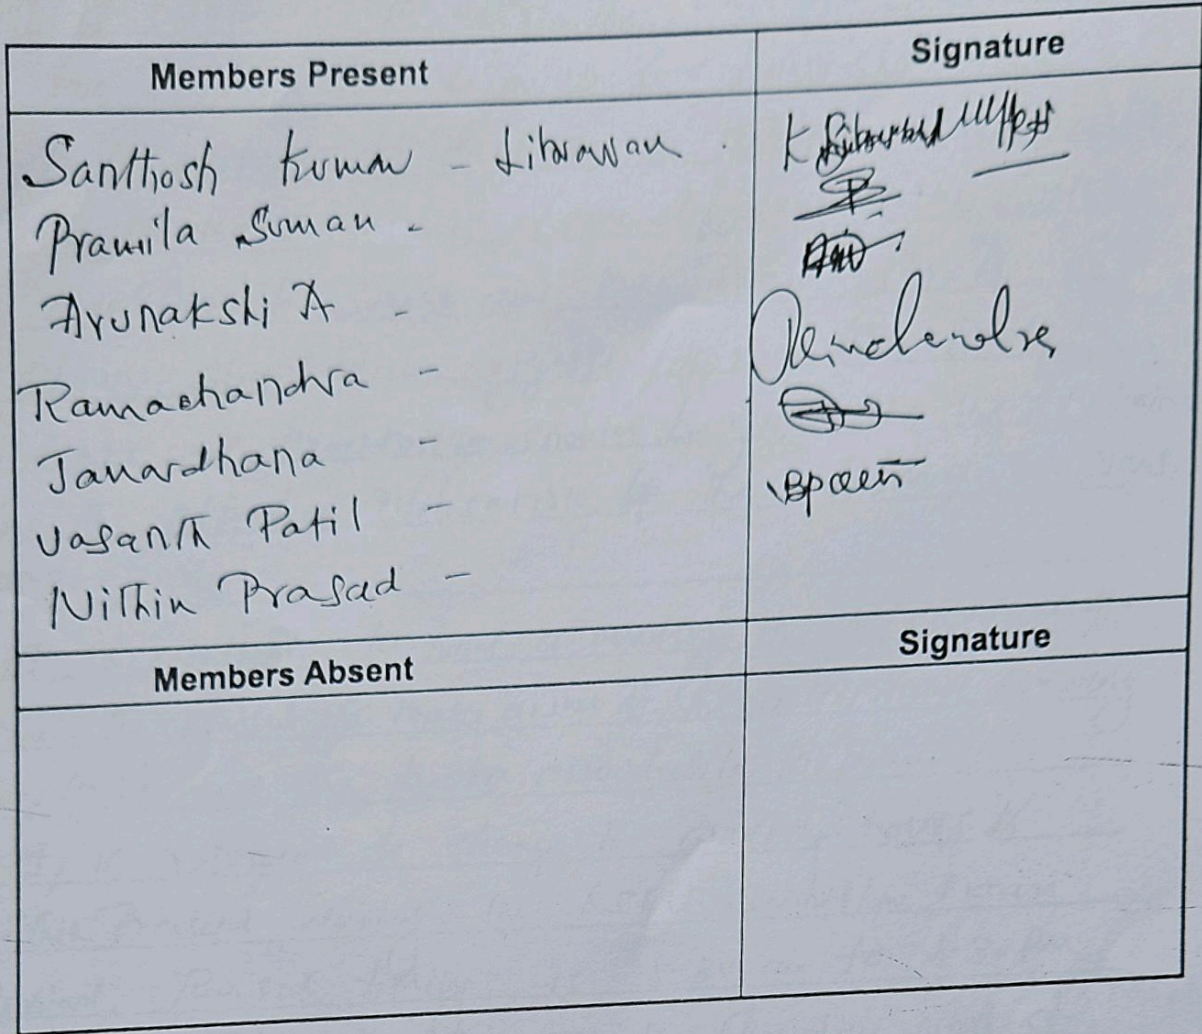 Members Present Signature
Santhosh Kumar - Librarian
Pramila Suman -
Arunakshi A -
Ramachandra - Ramachandra
Janardhana -
Vasanth Patil -
Nithin Prasad -
Members Absent Signature